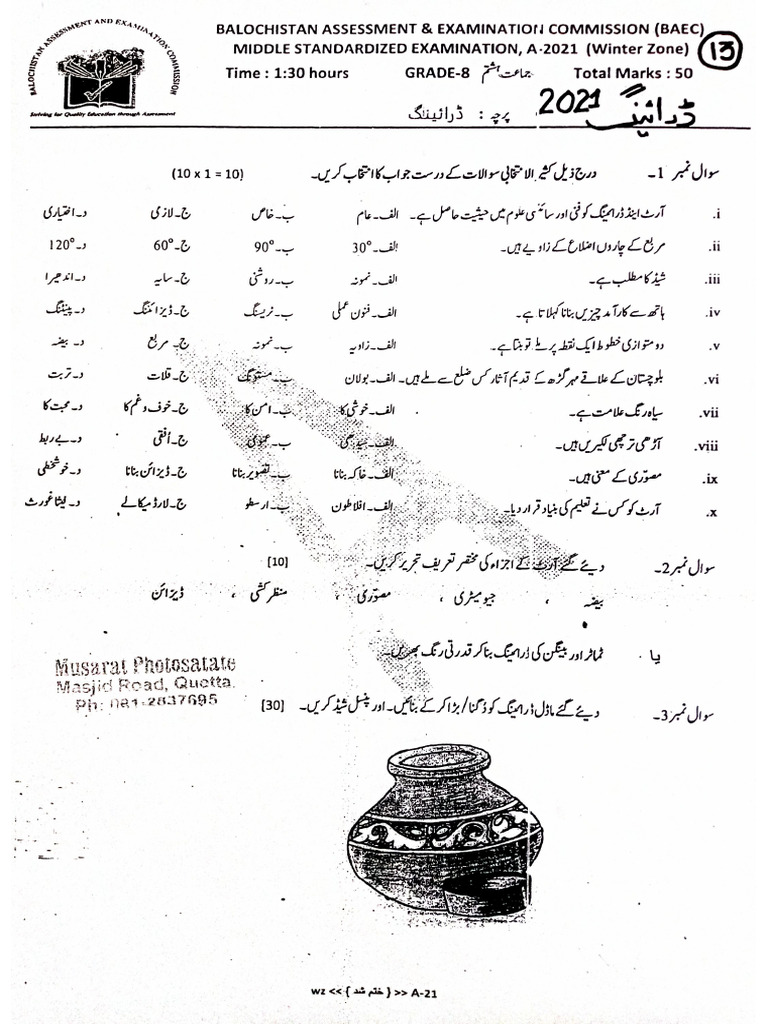 BALOCHISTAN ASSESSMENT AND EXAMINATION COMMISSION
Striving for Quality Education through Assessment
BALOCHISTAN ASSESSMENT & EXAMINATION COMMISSION (BAEC)
MIDDLE STANDARDIZED EXAMINATION, A-2021 (Winter Zone)
13
Time : 1:30 hours GRADE-8 جماعت ہشتم Total Marks : 50
پرچہ : ڈرائینگ 2021 ڈرائینگ
سوال نمبر 1۔ درج ذیل کثیر الانتخابی سوالات کے درست جواب کا انتخاب کریں۔ (10 x 1 = 10)
i. آرٹ اینڈ ڈرائینگ کو فنی اور سائنسی علوم میں حیثیت حاصل ہے۔ الف۔ عام ب۔ خاص ج۔ لازمی د۔ اختیاری
ii. مربع کے چاروں اضلاع کے زاویے ہیں۔ الف۔ 30° ب۔ 90° ج۔ 60° د۔ 120°
iii. شیڈ کا مطلب ہے۔ الف۔ نمونہ ب۔ روشنی ج۔ سایہ د۔ اندھیرا
iv. ہاتھ سے کار آمد چیزیں بنانا کہلاتا ہے۔ الف۔ فنون عملی ب۔ ٹریسنگ ج۔ ڈیزائننگ د۔ پینٹنگ
v. دو متوازی خطوط ایک نقطہ پر ملے تو بنتا ہے۔ الف۔ زاویہ ب۔ نمونہ ج۔ مربع د۔ بیضہ
vi. بلوچستان کے علاقے مہر گڑھ کے قدیم آثار کس ضلع سے ملے ہیں۔ الف۔ بولان ب۔ مستونگ ج۔ قلات د۔ تربت
vii. سیاہ رنگ علامت ہے۔ الف۔ خوشی کا ب۔ امن کا ج۔ خوف و غم کا د۔ محبت کا
viii. آڑھی ترچھی لکیریں ہیں۔ الف۔ ب۔ عمودی ج۔ اُفقی د۔ بے ربط
ix. مصوّری کے معنی ہیں۔ الف۔ خاکہ بنانا ب۔ تصویر بنانا ج۔ ڈیزائن بنانا د۔ خوشخطی
x. آرٹ کو کس نے تعلیم کی بنیاد قرار دیا۔ الف۔ افلاطون ب۔ ارسطو ج۔ لارڈ میکالے د۔ فیثا غورث
سوال نمبر 2۔ دیئے گئے آرٹ کے اجزاء کی مختصر تعریف تحریر کریں۔ [10]
بیضہ ، جیومیٹری ، مصوّری ، منظر کشی ، ڈیزائن
یا ٹماٹر اور بینگن کی ڈرائینگ بنا کر قدرتی رنگ بھریں۔
Musarat Photosatate
Masjid Road, Quetta.
Ph: 081-2837695
سوال نمبر 3۔ دیئے گئے ماڈل ڈرائینگ کو دُگنا / بڑا کر کے بنائیں۔ اور پنسل شیڈ کریں۔ [30]
wz << { ختم شد } >> A-21